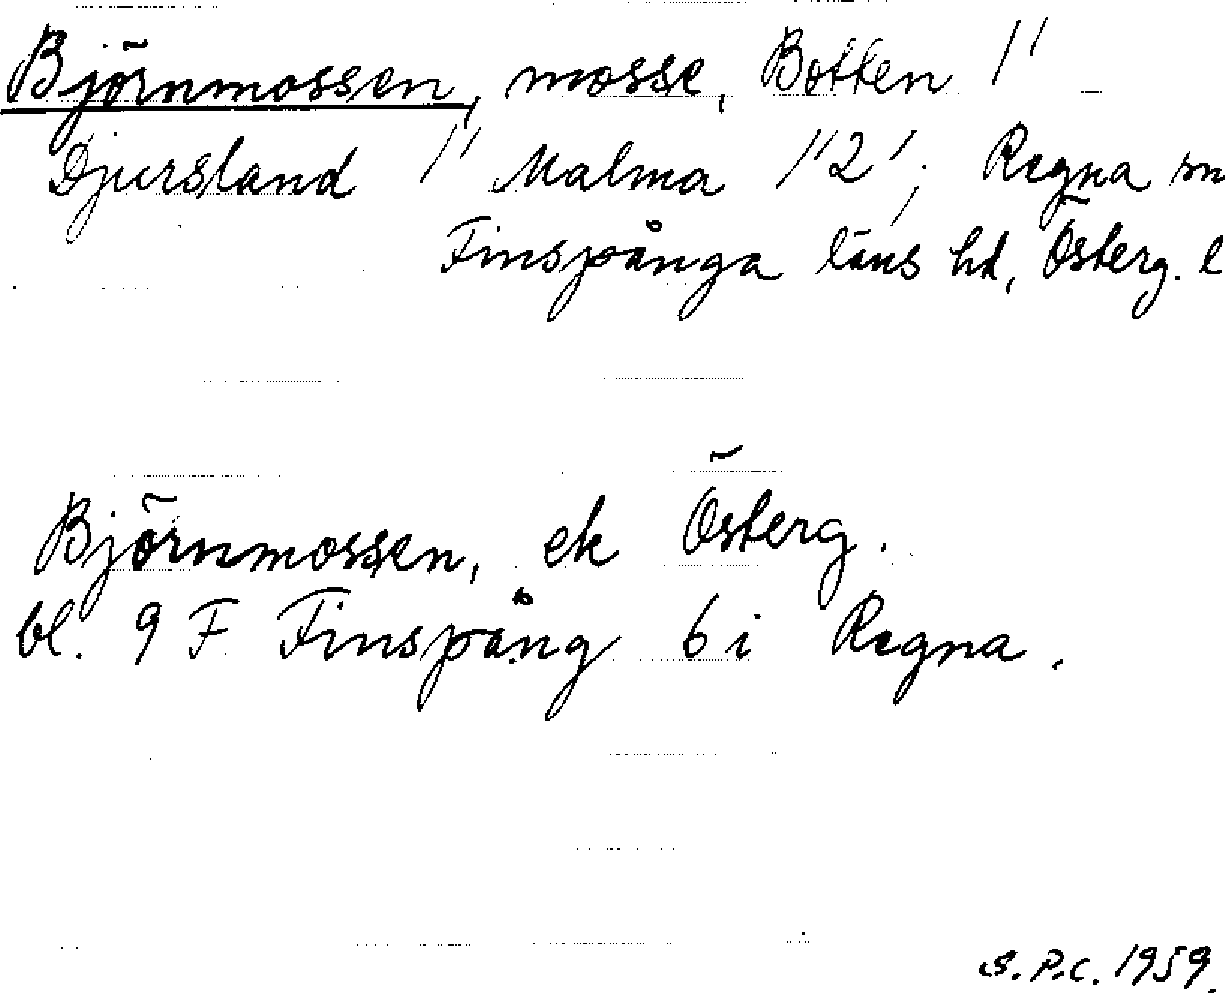 Björnmossen, mosse, Botten 1/1 –
Djursland 1/1 Malma 1/1 2/1; Regna sn
Finspånga läns hd, Österg. l
Björnmossen, ek Österg.
bl. 9 F Finspång 6 i Regna.
S.P.C. 1959.